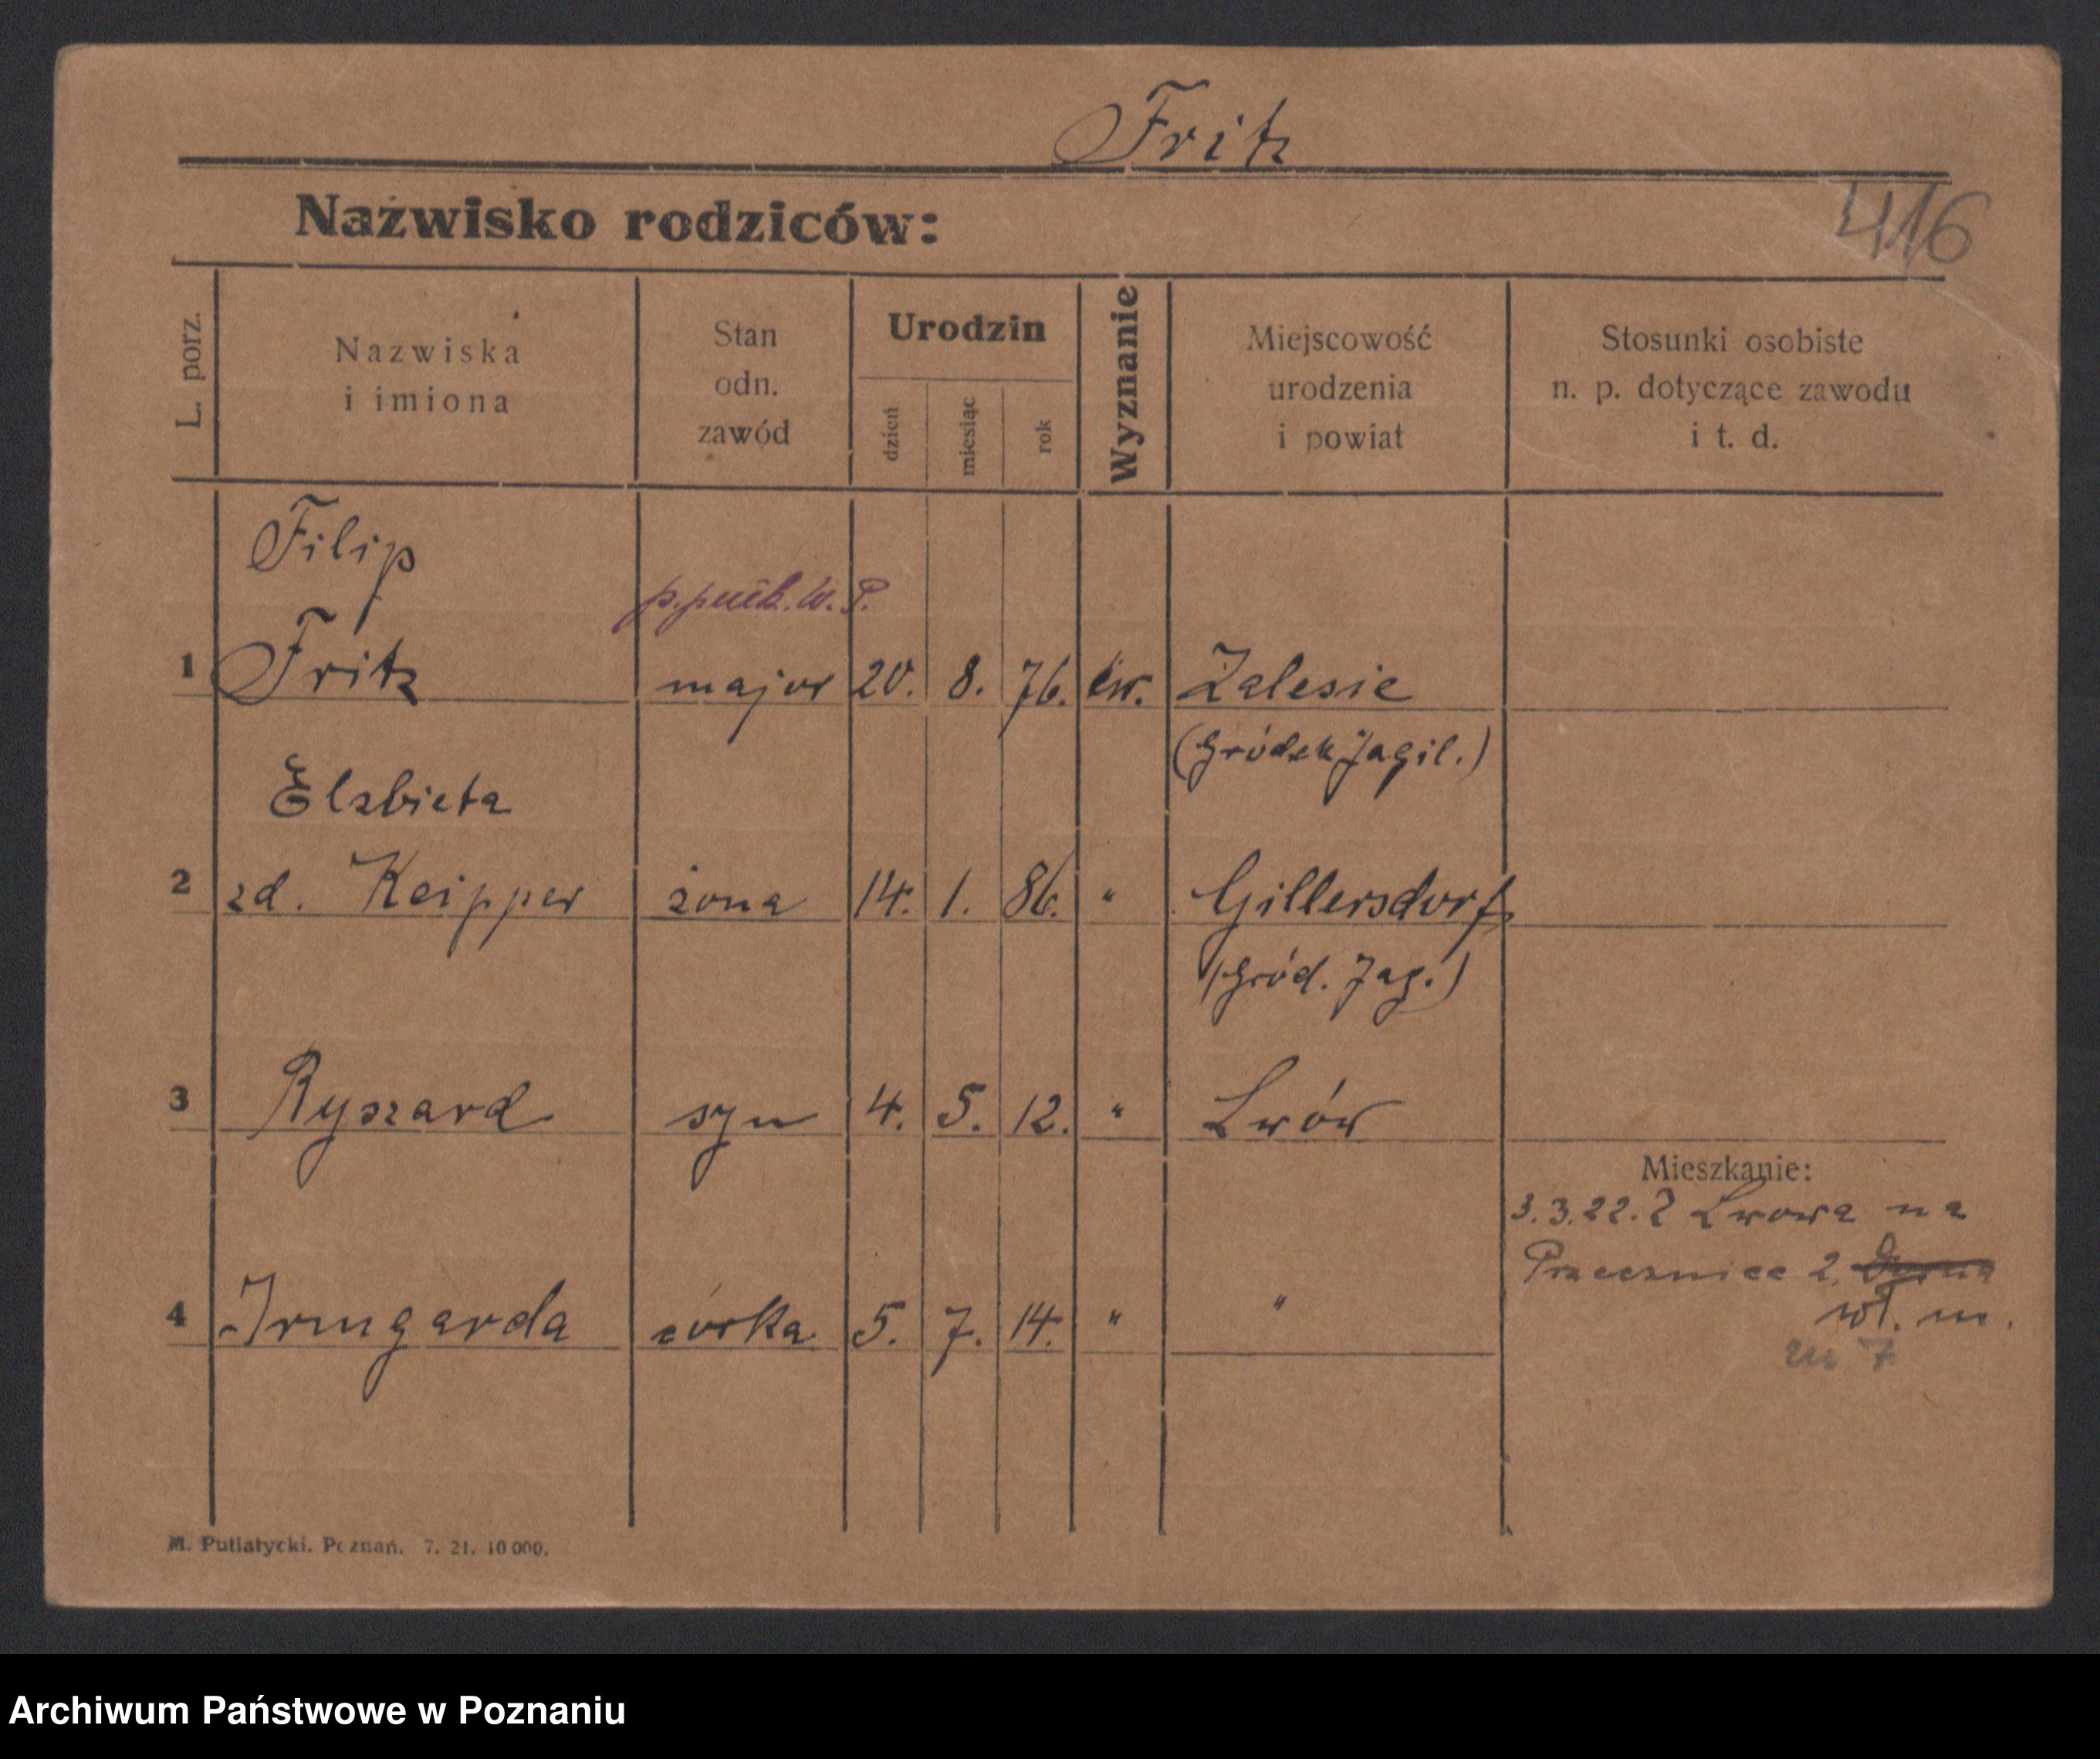 Fritz
Nazwisko rodziców:
416
L. porz.
Nazwiska
i imiona
Stan
odn.
zawód
Urodzin
dzień
miesiąc
rok
Wyznanie
Miejscowość
urodzenia
i powiat
Stosunki osobiste
n. p. dotyczące zawodu
i t. d.
Filip
p.pułk. W. P.
1 Fritz major 20. 8. 76. ew. Zalesie
(Gródek Jagil.)
Elzbieta
2 zd. Keipper żona 14. 1. 86. " Gillersdorf
(Gród. Jag.)
3 Ryszard syn 4. 5. 12. " Lwów
Mieszkanie:
3.3.22. Z Lwowa na
Przecznice 2.
4 Irmgarda córka 5. 7. 14. " "
wł. m.
m 7
M. Putiatycki. Poznań. 7. 21. 10 000.
Archiwum Państwowe w Poznaniu